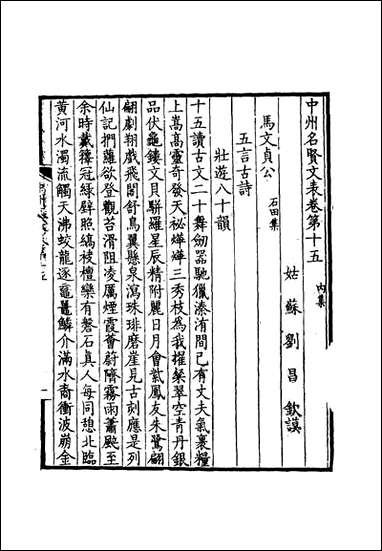 中州名賢文表卷第十五　內集
姑蘇劉昌欽謨
馬文貞公　石田集
五言古詩
壯遊八十韻
十五讀古文二十舞劒器馳獵溱洧間已有丈夫氣裹糧
上嵩高靈奇發天祕燁燁三秀枝為我擢粲翠空青丹銀
品伏龜鏤文貝駢羅星辰精附麗日月會紫鳳友朱鷺翩
翩劇翔戲飛閣舒鳥翼懸泉瀉珠琲磨崖見古刻應是列
仙記捫蘿欲登觀苔滑阻凌厲煙霞薈蔚隮霧雨蕭颸至
余時戴籜冠綠壁照縞袂檀欒有磐石真人每同憩北臨
黃河水濁流觸天沸蛟龍逐黿鼉鱗介滿水裔衝波崩金